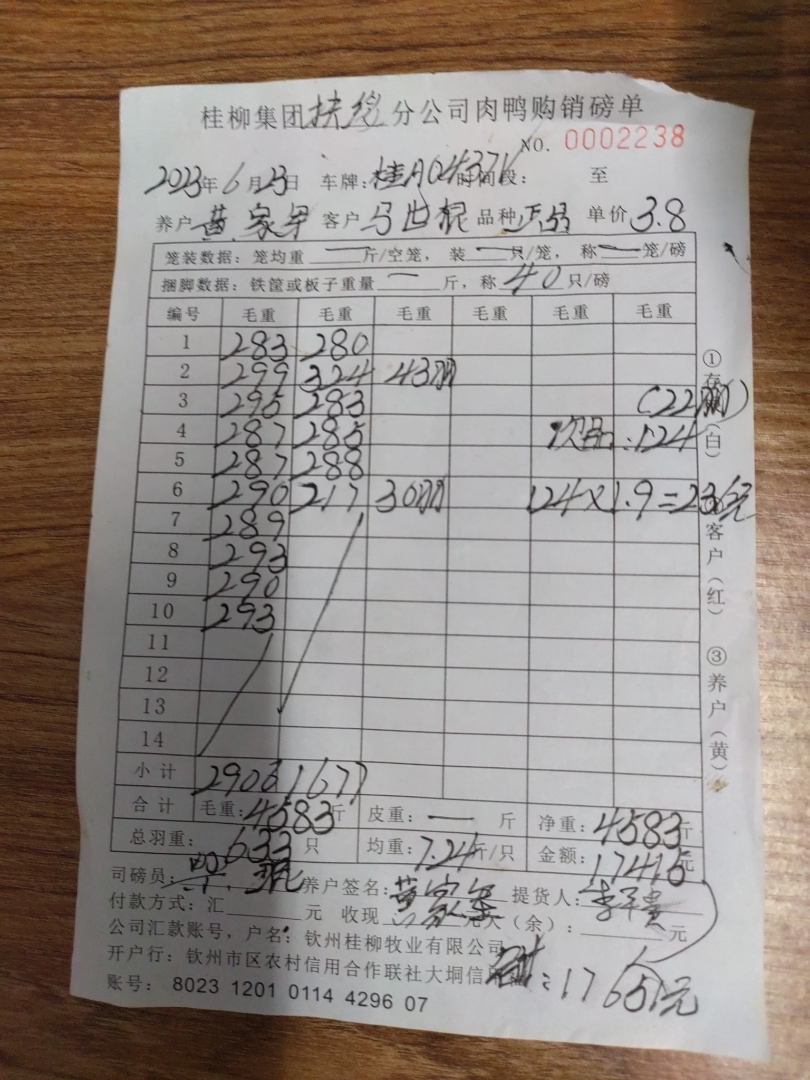 桂柳集团扶绥分公司肉鸭购销磅单
NO. 0002238
2023年6月23日 车牌: 时间段: 至
养户黄家 客户马世 品种正品 单价3.8
笼装数据: 笼均重 一 斤/空笼, 装 一 只/笼, 称 一 笼/磅
捆脚数据: 铁筐或板子重量 一 斤, 称 40 只/磅
编号 毛重 毛重 毛重 毛重 毛重 毛重
1 283 280
2 299 324 43
3 295 283 (22)
4 287 285 次品:124
5 287 288
6 290 217 30 124×1.9=236元
7 289
8 293
9 290
10 293
11
12
13
14
小计 2906 1677
合计 毛重:4583斤 皮重: 一 斤 净重:4583斤
总羽重: 633只 均重:7.24斤/只 金额:17415元
司磅员: 养户签名:黄家 提货人:李
付款方式: 汇 元 收现 元 欠(余): 元
公司汇款账号, 户名: 钦州桂柳牧业有限公司
开户行: 钦州市区农村信用合作联社大垌信用
账号: 8023 1201 0114 4296 07
:17651元
①存 (白) 客户(红) ③养户(黄)